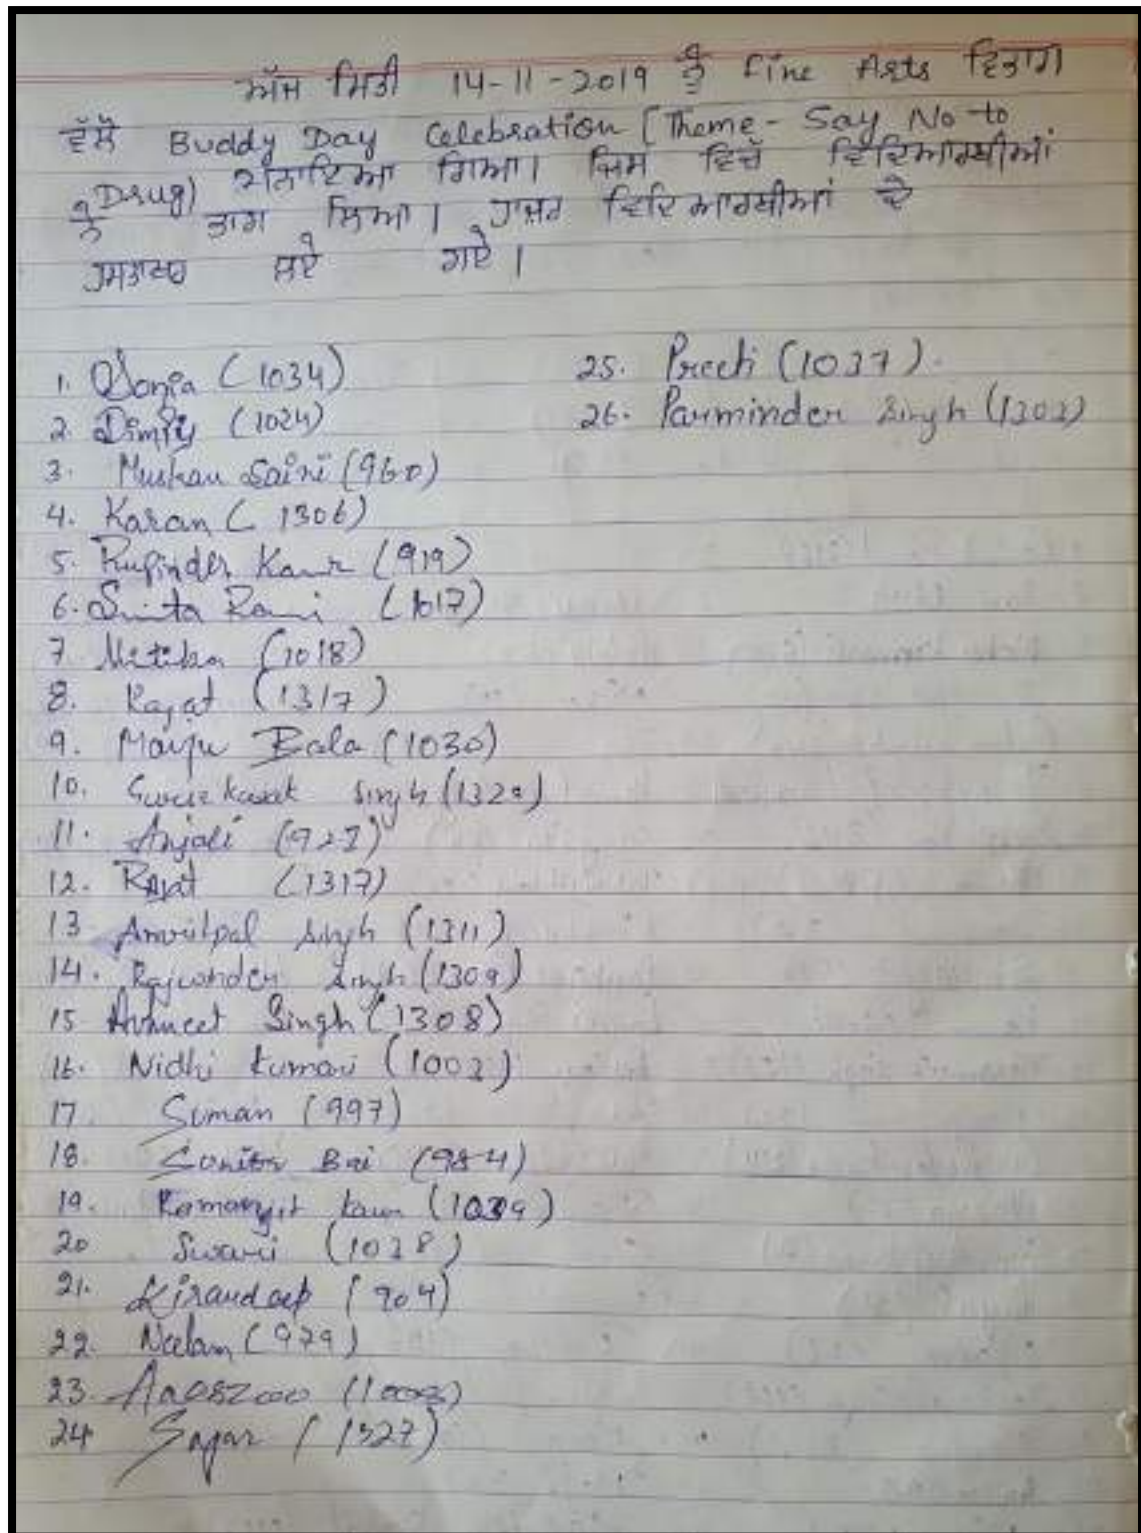 ਅੱਜ ਮਿਤੀ 14-11-2019 ਨੂੰ Fine Arts ਵਿਭਾਗ
ਵੱਲੋਂ Buddy Day Celebration (Theme - Say No to
Drug) ਮਨਾਇਆ ਗਿਆ। ਜਿਸ ਵਿਚੋਂ ਵਿਦਿਆਰਥੀਆਂ
ਨੇ ਭਾਗ ਲਿਆ। ਹਾਜ਼ਰ ਵਿਦਿਆਰਥੀਆਂ ਦੇ
ਹਸਤਾਖਰ ਲਏ ਗਏ।
1. Sonia (1034)
2. Dimpy (1024)
3. Muskan Saini (960)
4. Karan (1306)
5. Rupinder Kaur (919)
6. Sunita Rani (1017)
7. (1018)
8. Rajat (1317)
9. Manju Bala (1030)
10. Singh
11. Anjali
12. Rajat (1317)
13 Amritpal Singh (1311)
14. Rajwinder Singh (1309)
15 Avneet Singh (1308)
16. Nidhi Kumari (1003)
17. Suman (997)
18. Bai (984)
19. Ramanjit Kaur
20
21. Kirandeep (904)
22. Neelam (979)
23. Aaerzoo
24 Sagar (1327)
25. Preeti (1037).
26. Parminder Singh (1303)